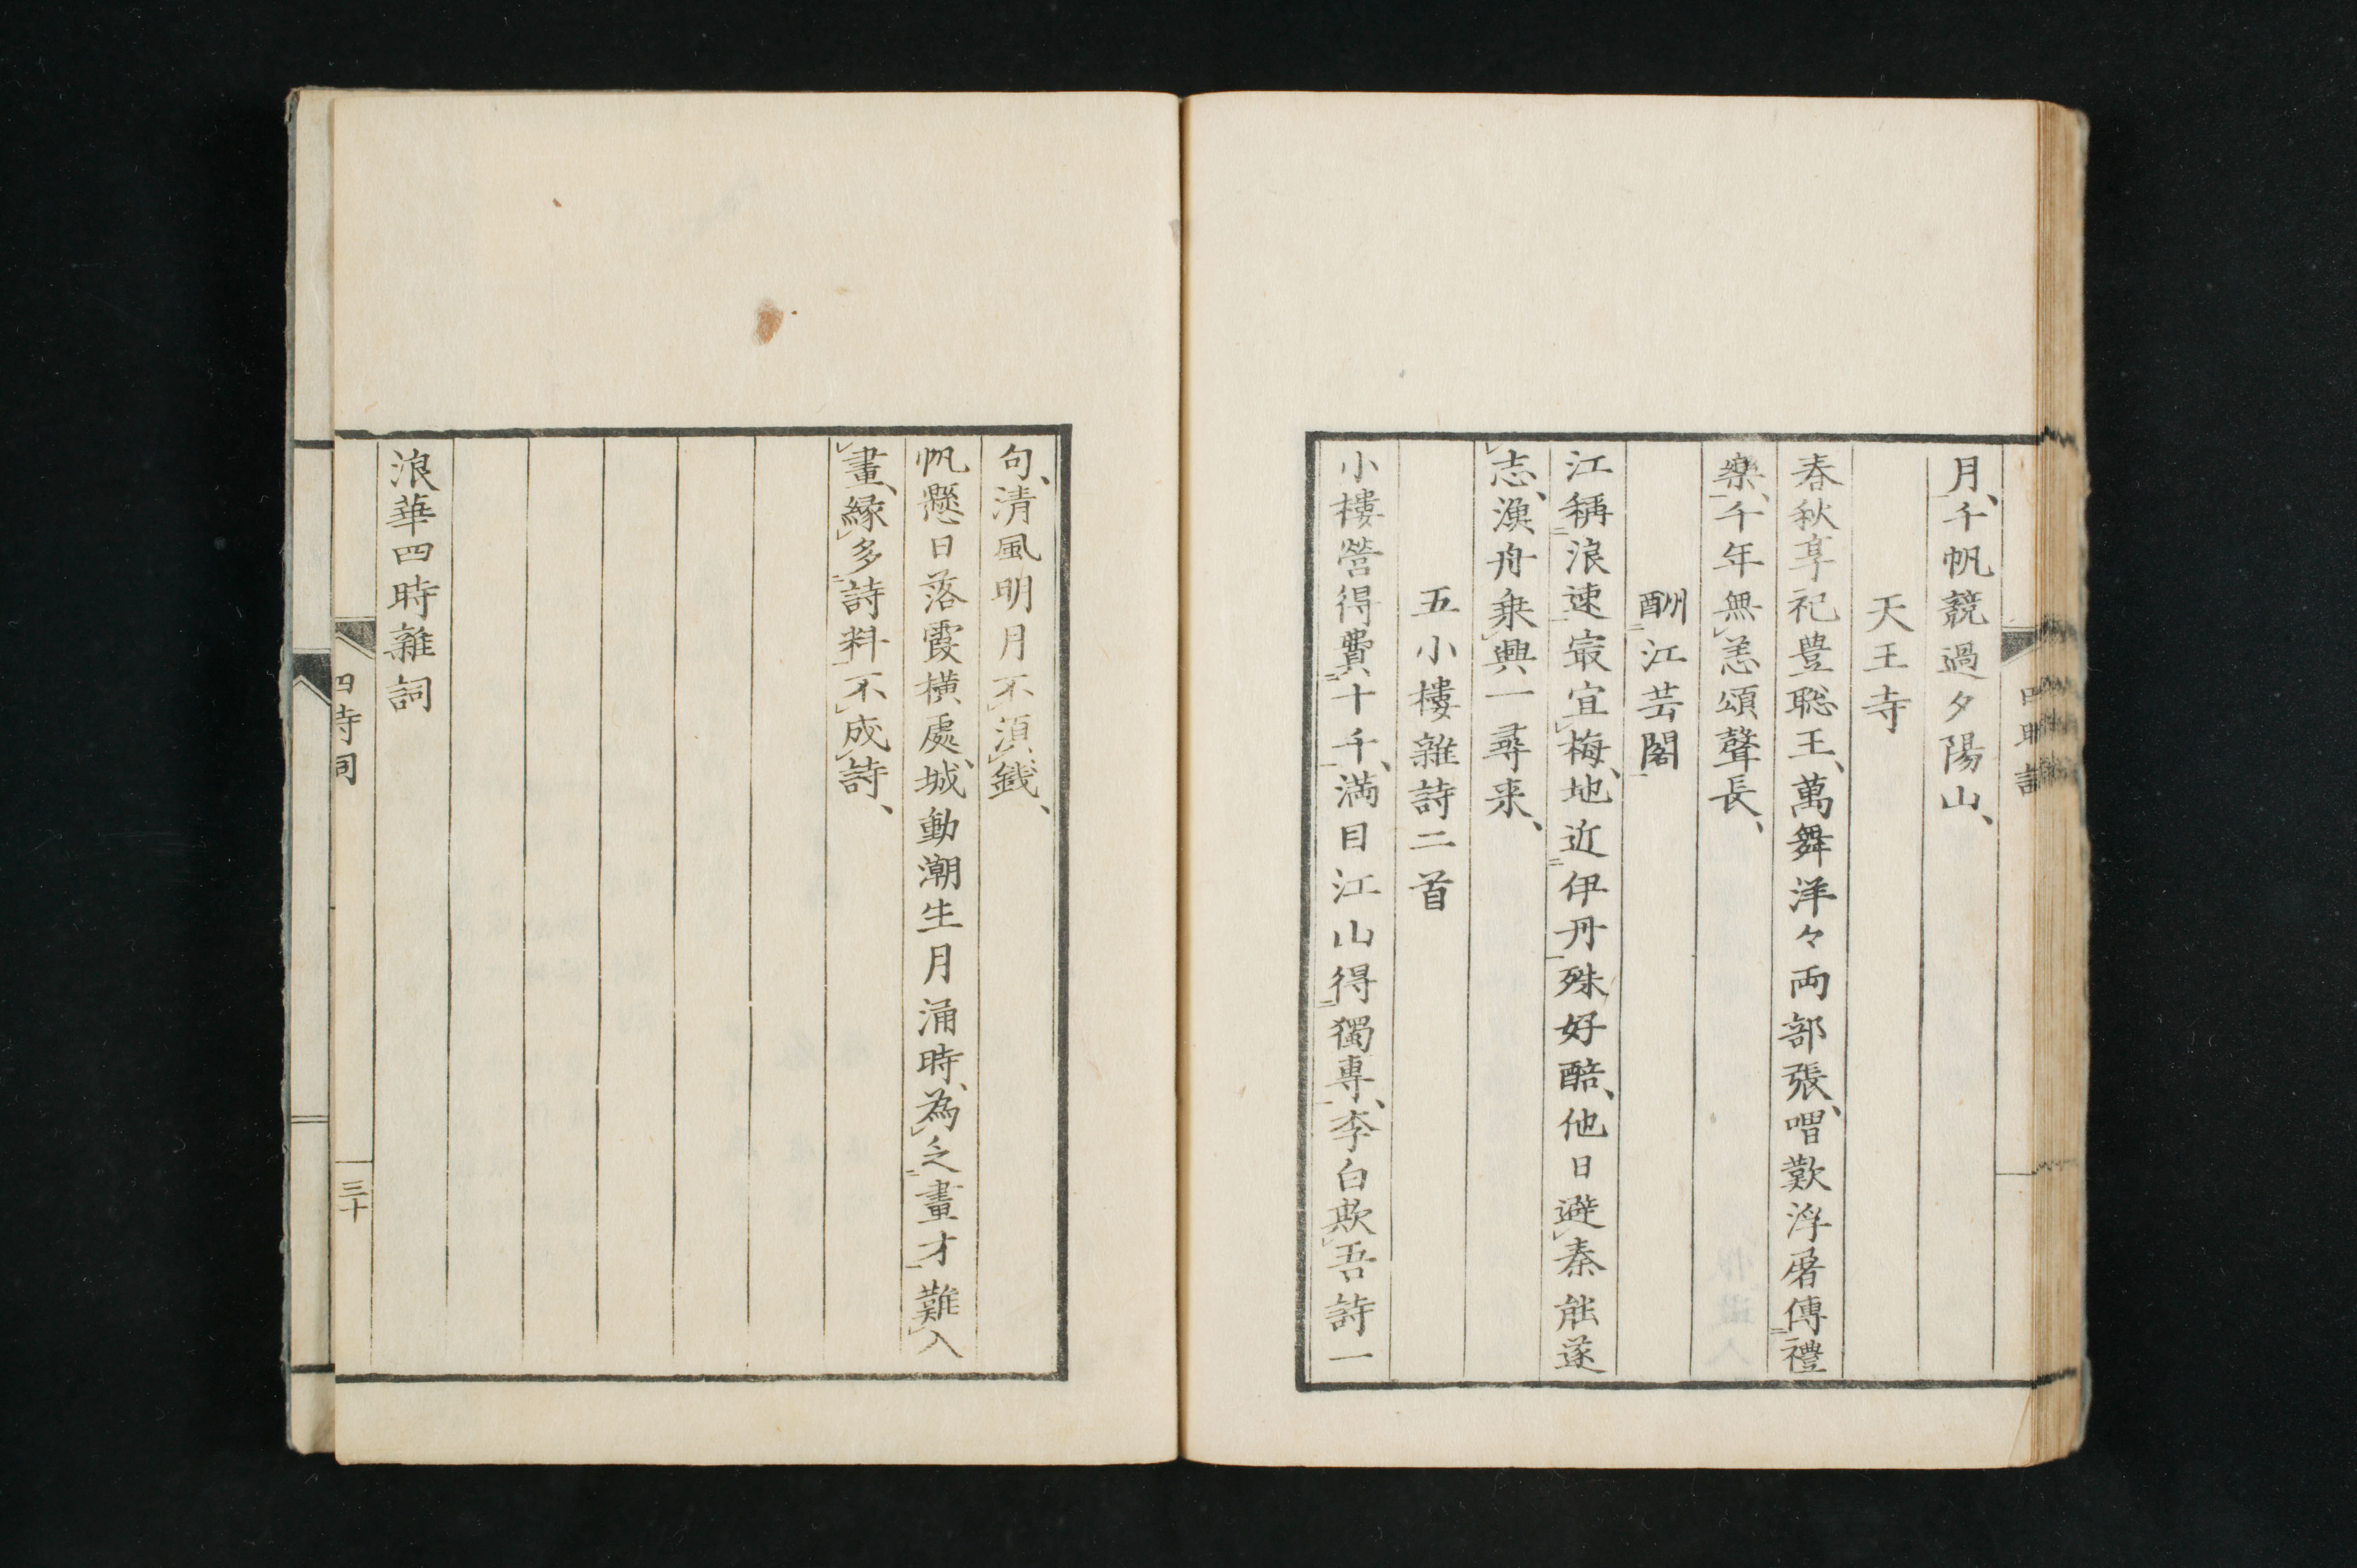 月、千帆競過夕陽山、
天王寺
春秋享祀豊聡王、萬舞洋々両部張、喟歎浮屠傳禮
樂、千年無恙頌聲長、
酬江芸閣
江稱浪速冣宜梅、地近伊丹殊好醅、他日避秦能遂
志、漁舟乗興一尋来、
五小樓雜詩二首
小樓營得費十千、満目江山得獨專、李白欺吾詩一
句、清風明月不須錢、
帆懸日落霞横處、城動潮生月涌時、為之畫才難入
畫、縁多詩料不成詩、
浪華四時雜詞
四時詞
三十